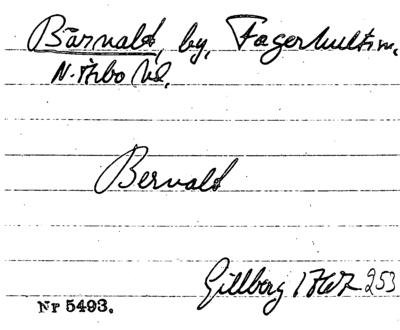 Bärnalt, by, Fagerhult sn.
N. Åsbo hd.
Bernalt
Gillberg 1767 253
Nr 5493.